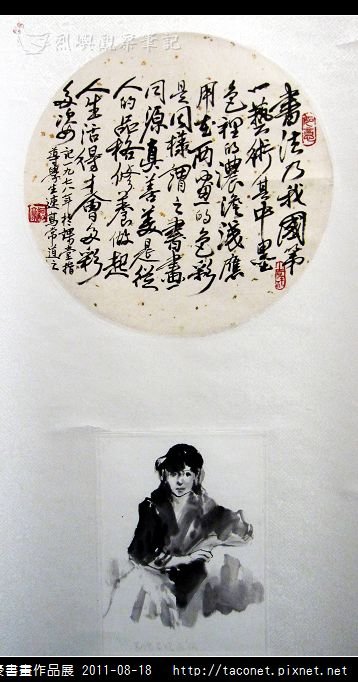 烈嶼觀察筆記
書法乃我國第
一藝術其中墨
色裡的濃淡淺應
用在西畫的色彩
是同樣謂之書畫
同源真善美是從
人的品格修養做起
人生活得才會多彩
多姿 記一九七八年於課堂指
導學生連寫帶道之
書畫作品展 2011-08-18 http://taconet.pixnet.net/